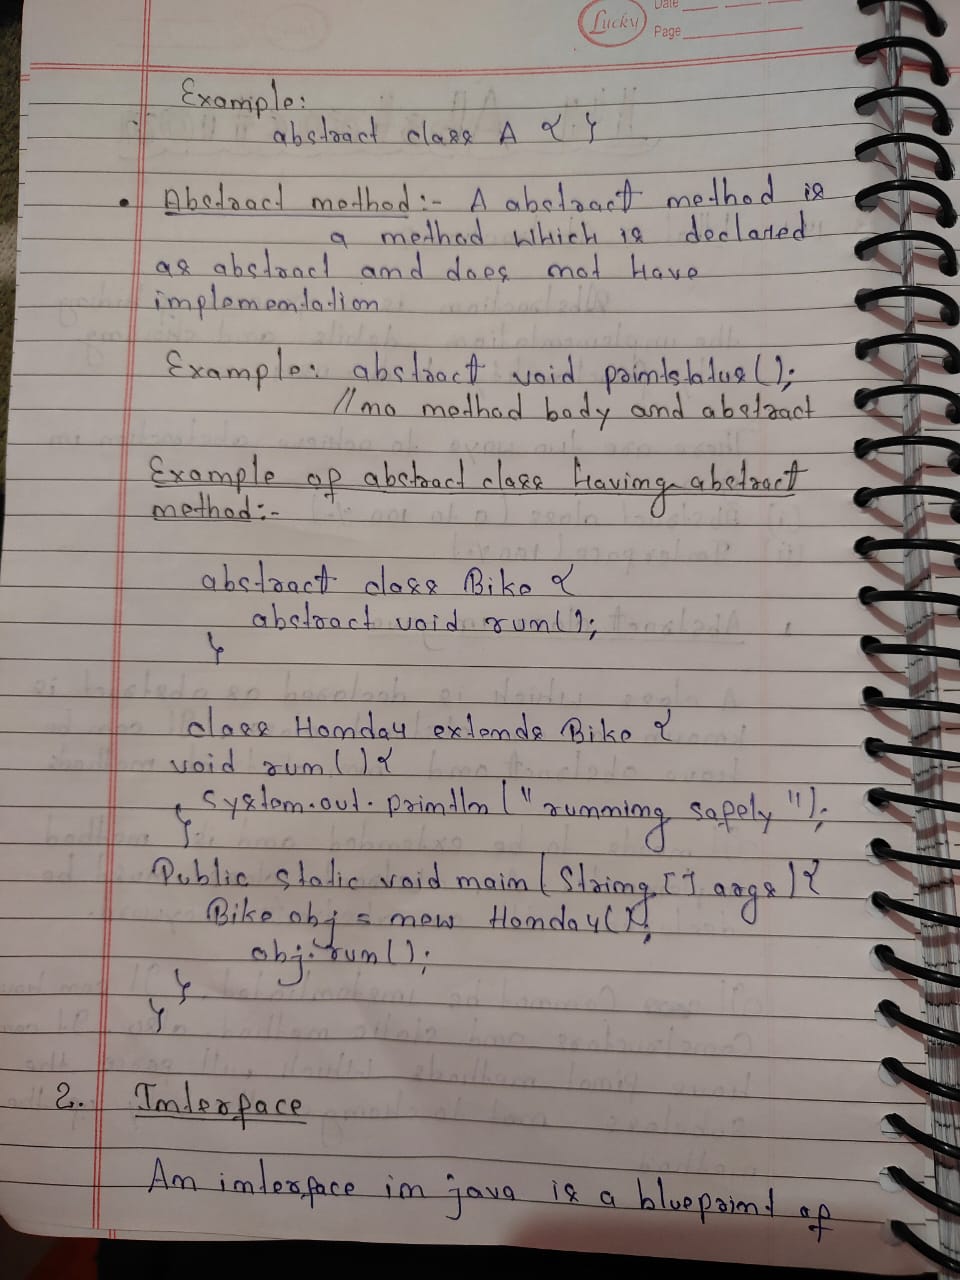 Lucky
Date
Page
Example:
abstract class A { }
• Abstract method:- A abstract method is
a method which is declared
as abstract and does not have
implementation
Example: abstract void printstatus();
//no method body and abstract
Example of abstract class having abstract
method:-
abstract class Bike {
abstract void run();
}
class Honday extends Bike {
void run(){
System.out.println("running safely");
}
Public static void main(String [] args){
Bike obj = new Honday();
obj.run();
}
}
2. Interface
An interface in java is a blueprint of